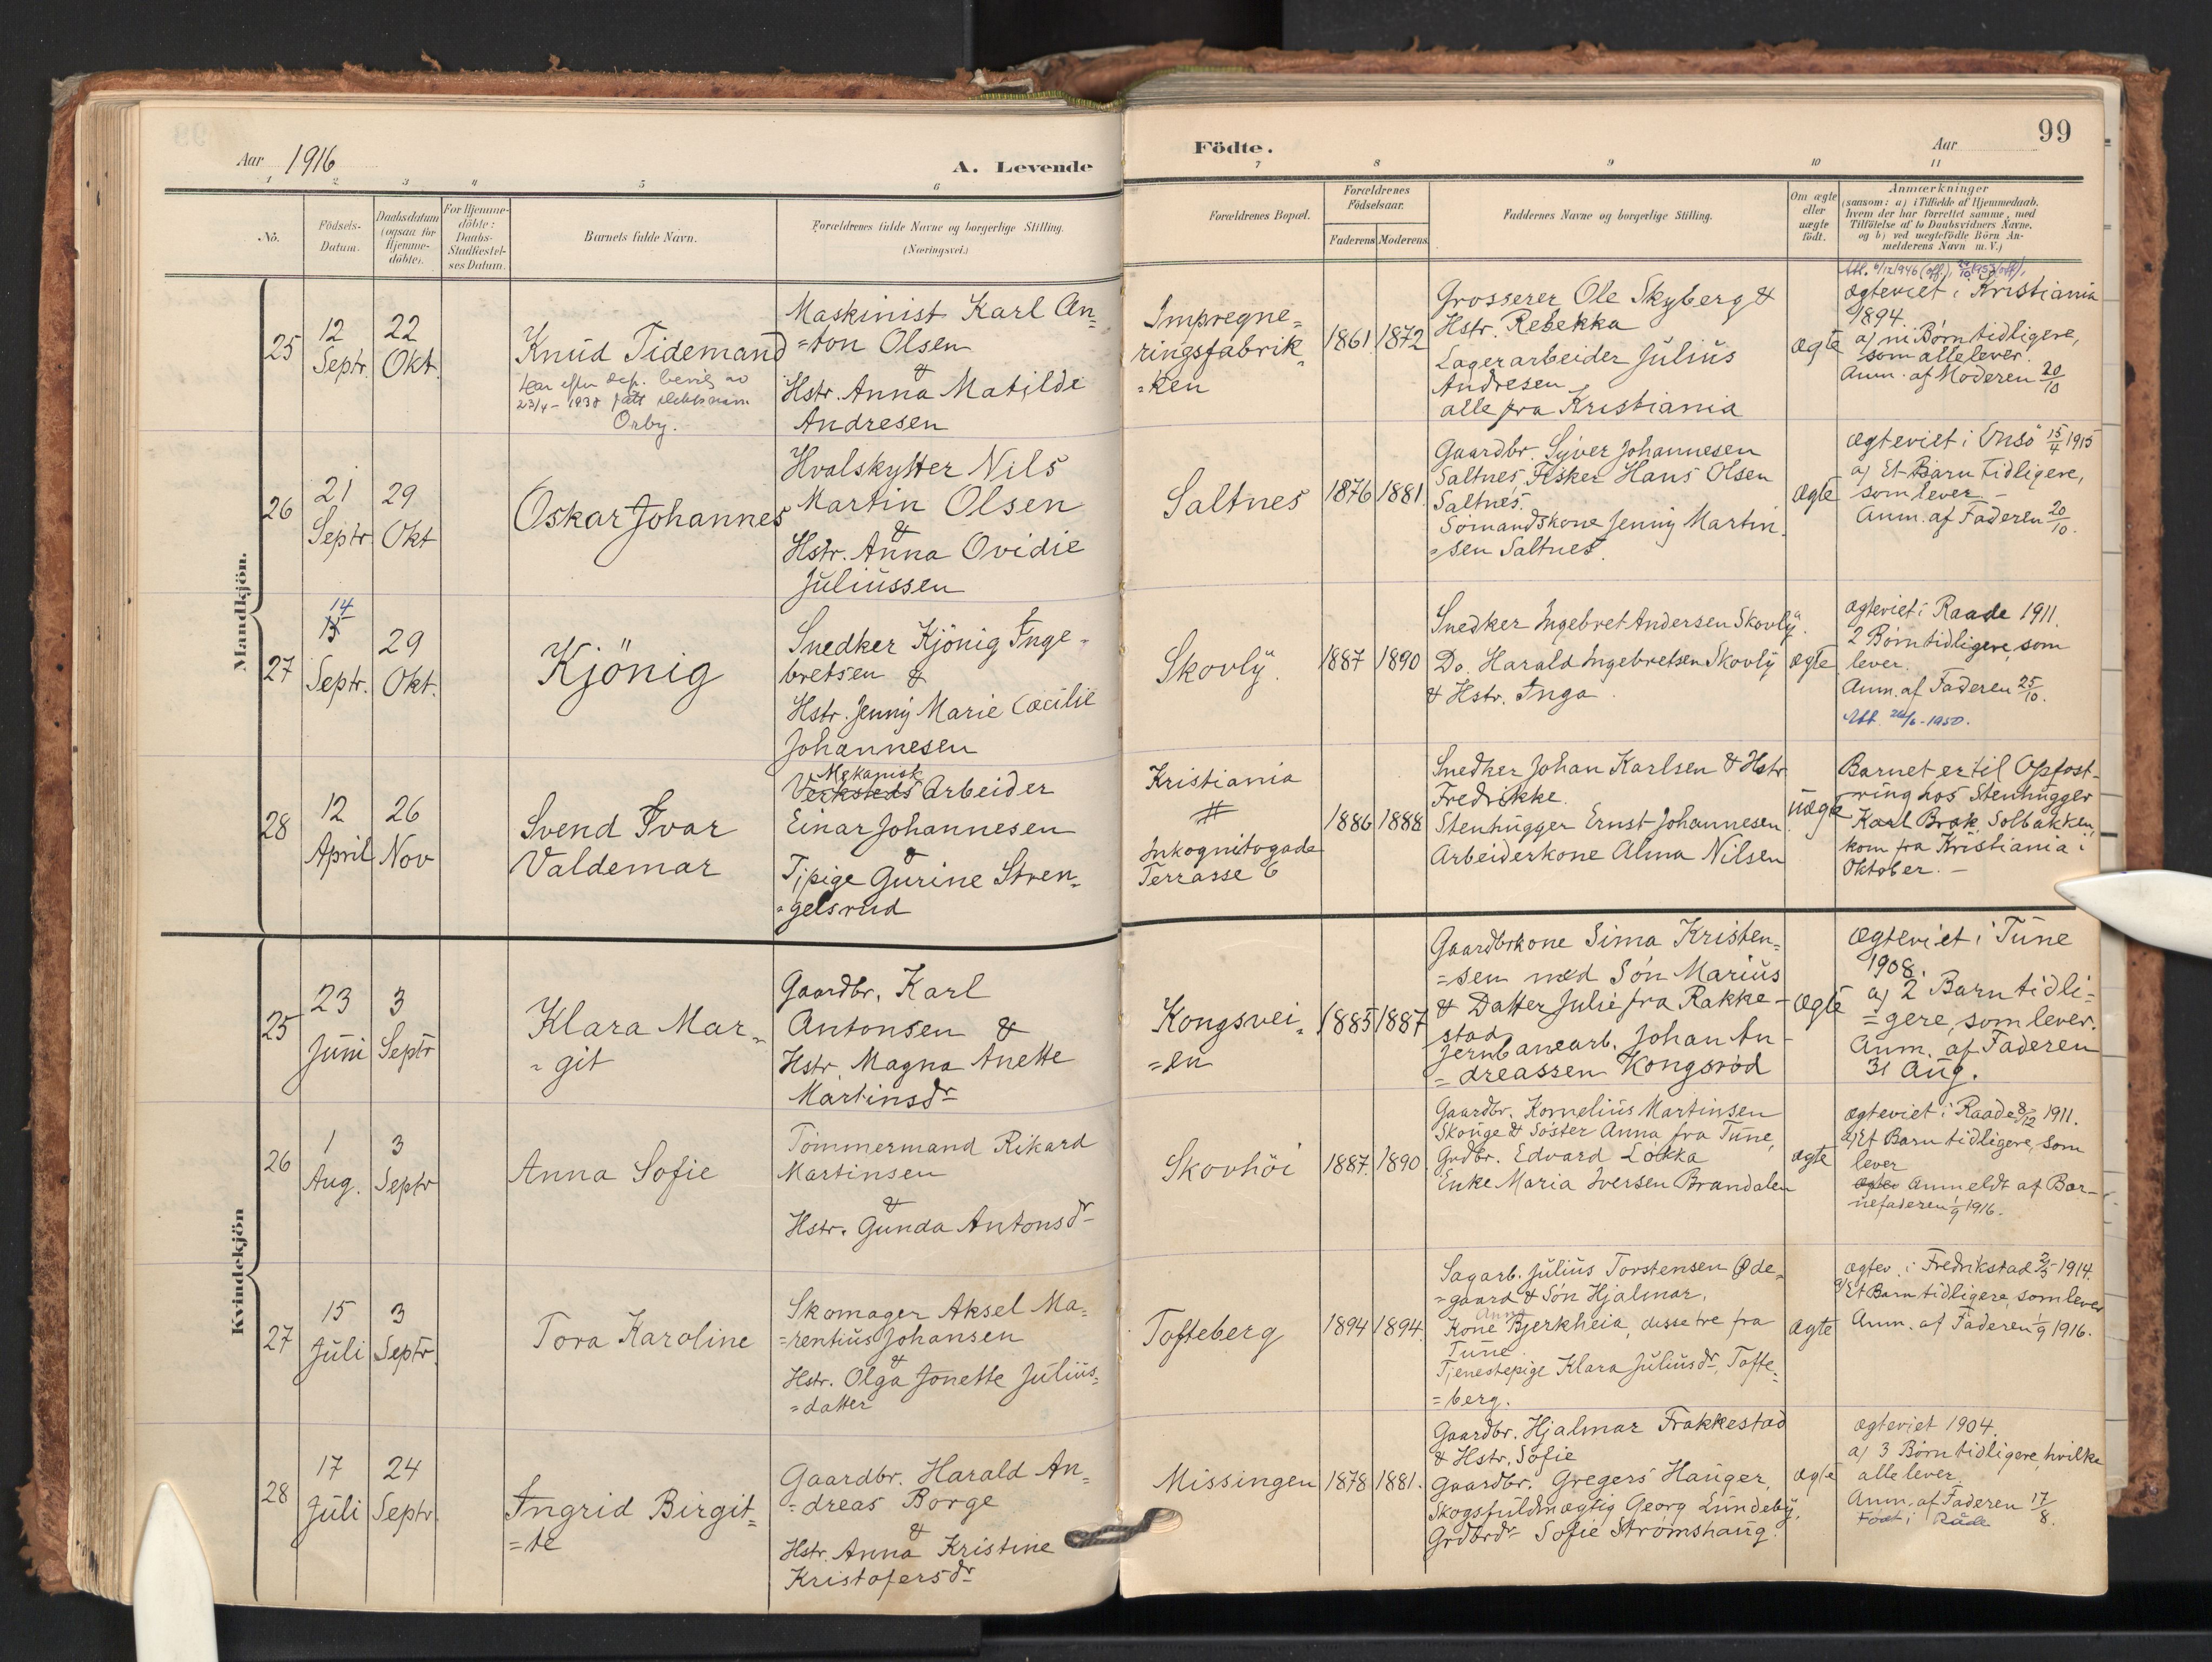 Aar 1916
A. Levende
Födte.
Aar
99
1 2 3 4 5 6 7 8 9 10 11
No.
Födsels-
Datum.
Daabsdatum
(ogsaa for
Hjemme-
döbte).
For Hjemme-
döbte:
Daabs-
Stadfæstel-
ses Datum.
Barnets fulde Navn.
Forældrenes fulde Navne og borgerlige Stilling.
(Næringsvei.)
Forældrenes Bopæl.
Forældrenes
Födselsaar.
Faderens
Moderens
Faddernes Navne og borgerlige Stilling.
Om ægte
eller
uægte
födt.
Anmærkninger
(saasom: a) i Tilfælde af Hjemmedaab,
hvem der har forrettet samme, med
Tilföielse af to Daabsvidners Navne,
og b) ved uægtefödte Börn An-
melderens Navn m. V.)
Mandkjön.
25
12
Septr.
22
Okt.
Knud Tidemand
har efter dep. bevilg av
23/4-1938 fått slektsnavn
Orby.
Maskinist Karl An=
=ton Olsen
&
Hstr. Anna Matilde
Andresen
Impregne=
ringsfabrik=
=ken
1861
1872
Grosserer Ole Skyberg &
Hstr. Rebekka
Lagerarbeider Julius
Andresen
alle fra Kristiania
ægte
ægteviet i Kristiania
1894.
a) ni Børn tidligere,
som alle lever.
Anm. af Moderen 20/10
26
21
Septr
29
Okt
Oskar Johannes
Hvalskytter Nils
Martin Olsen
&
Hstr. Anna Ovidie
Juliussen
Saltnes
1876
1881.
Gaardbr. Syver Johannesen
Saltnes, Fisker Hans Olsen
Saltnes.
Sømandskone Jenny Martin
=sen Saltnes.
ægte
ægteviet i Onsø 15/4 1915
a) Et Barn tidligere,
som lever. –
Anm. af Faderen 20/10.
27
14
Septr.
29
Okt.
Kjönig
Snedker Kjönig Inge=
bretsen &
Hstr. Jenny Marie Cæcilie
Johannesen
Skovly.
1887
1890
Snedker Ingebret Andersen Skovly.
Do. Harald Ingebretsen Skovly
& Hstr. Inga.
ægte
ægteviet i Raade 1911.
2 Børn tidligere, som
lever.
Anm. af Faderen 25/10.
Att. 26/6-1950.
28
12
April
26
Nov
Svend Ivar
Valdemar
Mekanisk
Verksteds Arbeider
Einar Johannesen
&
Tjpige Gurine Stren=
=gelsrud
Kristiania
#
Inkognitogade
Terrasse 6
1886
1888
Snedker Johan Karlsen & Hstr
Fredrikke.
Stenhugger Ernst Johannesen
Arbeiderkone Alma Nilsen
uægte
Barnet er til Opfost-
ring hos Stenhugger
Karl Brak, Solbakken,
kom fra Kristiania i
Oktober. –
Kvindekjön
25
23
Juni
3
Septr
Klara Mar=
=git
Gaardbr. Karl
Antonsen &
Hstr. Magna Anette
Martinsdr
Kongsvei=
=en
1885
1887
Gaardbrkone Sima Kristen=
=sen med Søn Marius
& Datter Julie fra Rakke-
stad
Jernbanearb. Johan An-
=dreassen Kongsrød
ægte
Ægteviet i Tune
1908.
a) 2 Barn tidli=
=gere, som lever.
Anm. af Faderen
31 Aug.
26
1
Aug.
3
Septr
Anna Sofie
Tømmermand Rikard
Martinsen
&
Hstr. Gunda Antonsdr
Skovhöi
1887.
1890.
Gaardbr. Kornelius Martinsen
Skouge & Søster Anna fra Tune,
Grdbr. Edvard Løkka
Enke Maria Iversen Brandalen
ægte
ægteviet i Raade 8/12 1911.
a) Et Barn tidligere, som
lever
Anmeldt af Bar-
nefaderen 1/9 1916.
27
15
Juli
3
Septr.
Tora Karoline
Skomager Aksel Ma=
=rentius Johansen
&
Hstr. Olga Jonette Julius=
=datter
Tofteberg
1894
1894
Sagarb. Julius Torstensen Øde=
=gaard & Søn Hjalmar,
Anna
Kone Bjerkheia, disse tre fra
Tune.
Tjenestepige Klara Juliusdr, Tofte=
=berg.
ægte
ægtev. i Fredrikstad 2/5 1914.
a) Et Barn tidligere, som lever
Anm. af Faderen 1/9 1916.
28
17
Juli
24
Septr.
Ingrid Birgit=
=te
Gaardbr. Harald An=
=dreas Borge
&
Hstr. Anna Kristine
Kristofersdr
Missingen
1878
1881.
Gaardbr. Hjalmar Frakkestad
& Hstr. Sofie
Gaardbr. Gregers Hauger,
Skogsfuldmægtig Georg Lundeby,
Grdbrdr Sofie Strømshaug.
ægte
ægteviet 1904.
a) 3 Børn tidligere, hvilke
alle lever.
Anm. af Faderen 17/8.
Født i Råde